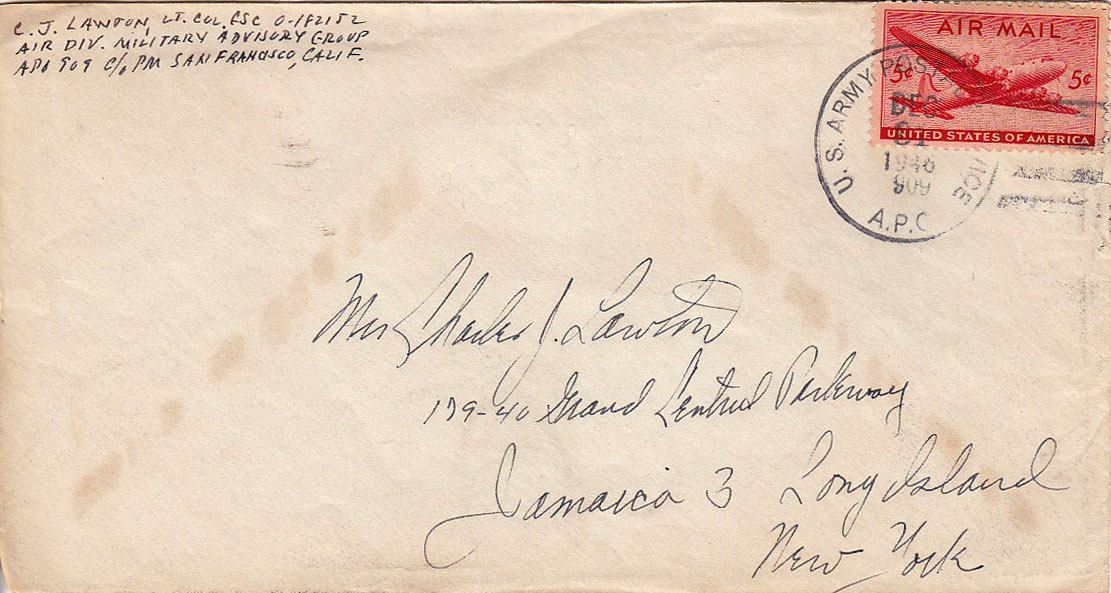 C. J. LAWTON, LT. COL. CSC O-182152
AIR DIV. MILITARY ADVISORY GROUP
APO 909 C/O PM SAN FRANCISCO, CALIF.
AIR MAIL
5¢ 5¢
UNITED STATES OF AMERICA
U.S. ARMY POSTAL
DEC
31
1946
909
A.P.O
Mrs Charles J. Lawton
179-40 Grand Central Parkway
Jamaica 3 Long Island
New York